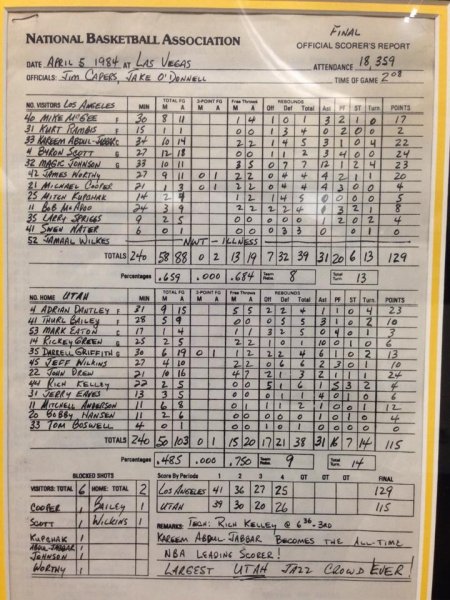 FINAL
NATIONAL BASKETBALL ASSOCIATION
OFFICIAL SCORER'S REPORT
DATE APRIL 5 1984 AT LAS VEGAS ATTENDANCE 18,359
OFFICIALS: JIM CAPERS, JAKE O'DONNELL TIME OF GAME 2:08
TOTAL FG 3-POINT FG Free Throws REBOUNDS
NO. VISITORS LOS ANGELES MIN M A M A M A Off Def Total Ast PF ST Turn POINTS
40 MIKE McGEE F 30 8 11 1 4 1 0 1 3 2 1 0 17
31 KURT RAMBIS F 15 1 1 0 0 1 3 4 0 2 0 0 2
33 KAREEM ABDUL-JABBAR C 34 10 14 2 2 1 4 5 3 1 0 4 22
4 BYRON SCOTT G 27 12 18 0 0 1 1 2 3 4 0 0 24
32 MAGIC JOHNSON G 33 10 11 3 5 0 7 7 12 1 2 4 23
42 JAMES WORTHY 27 9 11 0 1 2 2 0 4 4 4 2 1 20
21 MICHAEL COOPER 21 1 3 0 1 2 2 0 4 4 4 3 0 0 4
25 MITCH KUPCHAK 14 2 1 2 1 4 5 0 0 0 0 5
11 BOB McADOO 24 3 9 2 2 2 2 4 0 3 2 1 8
35 LARRY SPRIGGS 9 2 5 0 0 0 0 0 1 2 0 2 4
41 SWEN NATER 6 0 1 0 0 0 3 3 0 0
52 JAMAAL WILKES NWT - ILLNESS
TOTALS 240 58 88 0 2 13 19 7 32 39 31 20 6 13 129
Percentages .659 .000 .684 Team Rebs. 8 Total Turn. 13
TOTAL FG 3-POINT FG Free Throws REBOUNDS
NO. HOME UTAH MIN M A M A M A Off Def Total Ast PF ST Turn POINTS
4 ADRIAN DANTLEY F 31 9 15 5 5 2 2 4 1 1 0 4 23
41 THURL BAILEY F 28 5 9 0 0 0 5 5 3 1 0 2 10
53 MARK EATON C 17 1 4 1 1 3 2 5 0 4 0 1 3
14 RICKEY GREEN G 25 2 6 2 2 0 0 0 10 0 1 6
35 DARRELL GRIFFITH G 30 6 19 0 1 1 2 2 2 4 6 1 0 2 13
45 JEFF WILKINS 27 4 10 2 2 0 6 6 2 3 0 1 10
22 JOHN DREW 21 10 16 4 7 2 1 3 2 2 1 24
44 RICH KELLEY 22 2 5 0 0 5 1 6 1 5 3 2 4
31 JERRY EAVES 13 3 5 0 0 0 1 1 4 0 1 0 6
11 MITCHELL ANDERSON 11 6 8 0 1 1 1 2 1 0 0 1 12
20 BOBBY HANSEN 11 2 6 0 0 0 0 0 1 0 0 0 4
33 TOM BOSWELL 4 0 1 0 0 0 0 0 0 0
TOTALS 240 50 103 0 1 15 20 17 21 38 31 16 7 14 115
Percentages .485 .000 .750 Team Rebs. 9 Total Turn. 14
BLOCKED SHOTS
VISITORS: TOTAL 6 HOME: TOTAL 2
COOPER 1 BAILEY 1
SCOTT 1 WILKINS 1
KUPCHAK 1
ABDUL-JABBAR 1
JOHNSON 1
WORTHY 1
Score By Periods 1 2 3 4 OT OT OT FINAL
LOS ANGELES 41 36 27 25 129
UTAH 39 30 20 26 115
REMARKS: TECH: RICH KELLEY @ 6:36-3RD
KAREEM ABDUL JABBAR BECOMES THE ALL-TIME
NBA LEADING SCORER!
LARGEST UTAH JAZZ CROWD EVER!